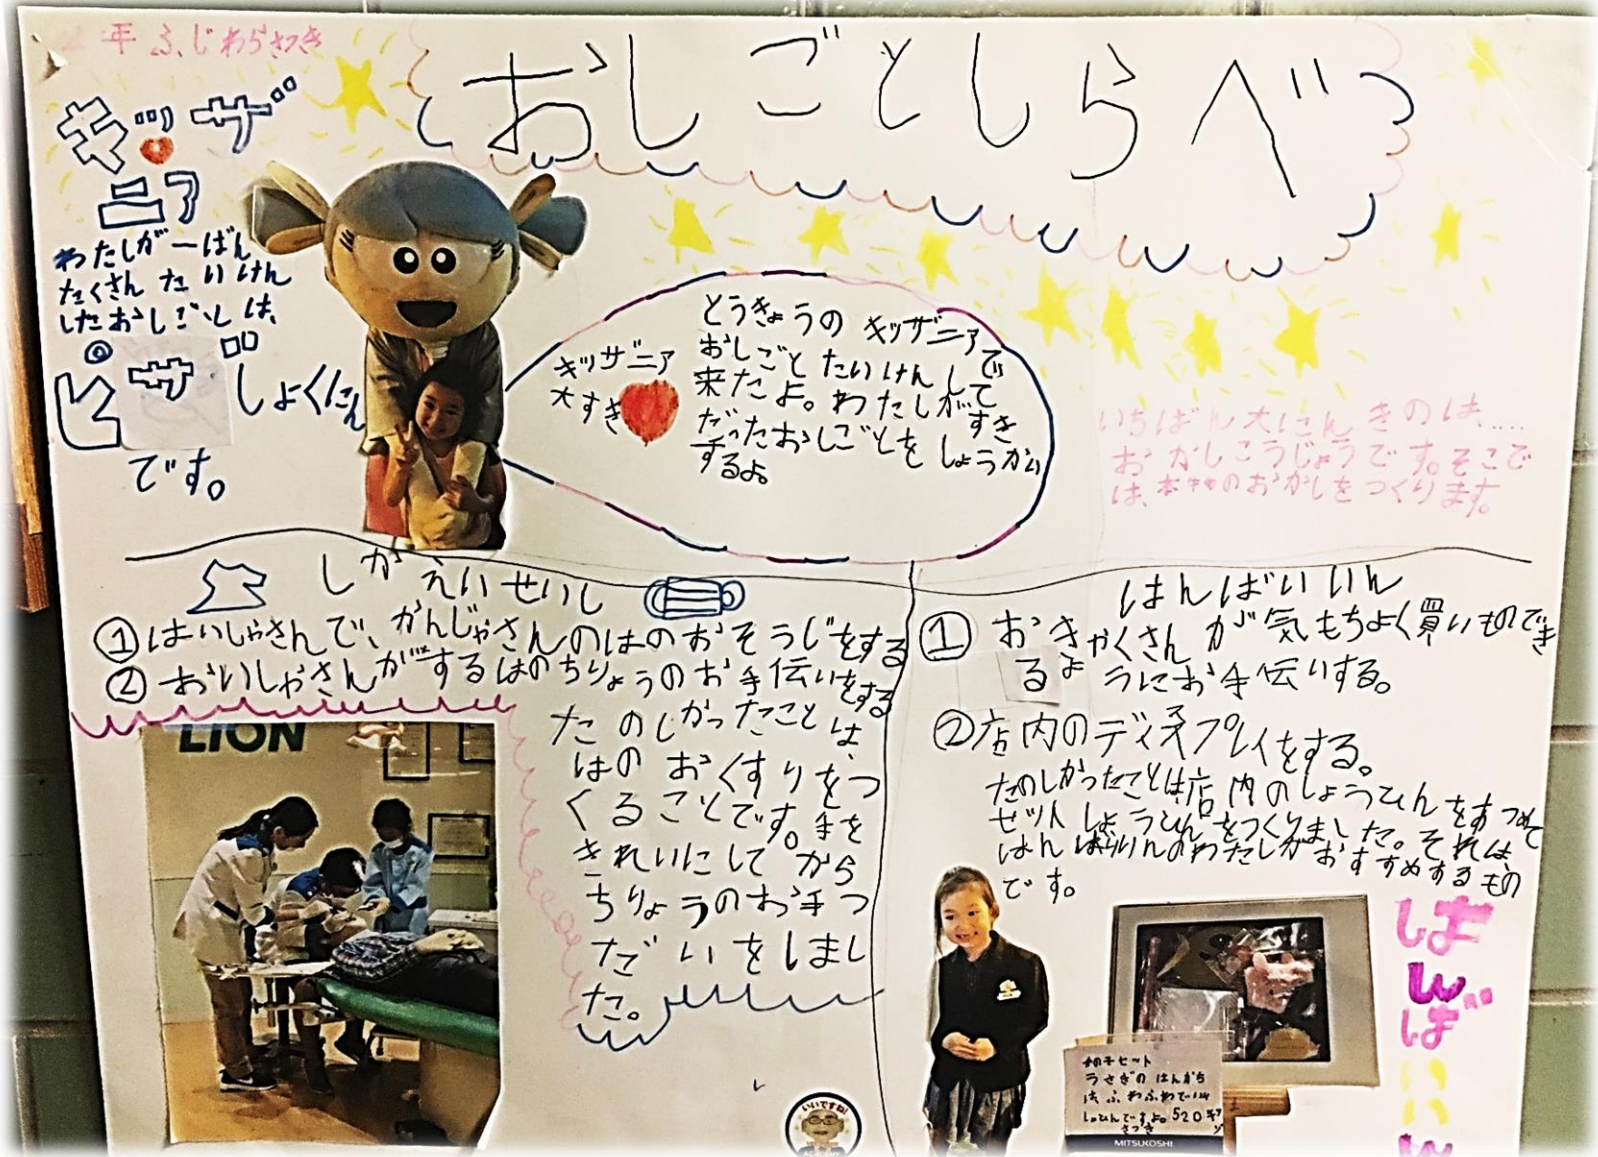 年 ふじわらさつき
おしごとしらべ
キッザ
ニア
わたしが一ばん
たくさん たいけん
したおしごとは、
ピザしょくにん
です。
キッザニア
大すき
とうきょうの キッザニアで
おしごと たいけんして
来たよ。わたしがすき
だったおしごとをしょうかい
するよ。
いちばん大にんきのは、....
おかしこうじょうです。そこで
は、本物のおかしをつくります。
しかえいせいし
①はいしゃさんで、かんじゃさんのはのおそうじをする
②おいしゃさんがするはのちりょうのお手伝いをする
たのしかったことは、
はの おくすりをつ
くることです。手を
きれいにして から
ちりょうのお手つ
だいをしまし
た。
LION
はんばいいん
①おきゃくさんが気もちよく買いものでき
るようにお手伝いする。
②店内のディスプレイをする。
たのしかったことは店内のしょうひんをあつめて
セットしょうひんをつくりました。それは、
はんばいいんのわたしがおすすめするもの
です。
はんばいいん
いいですね!
女の子セット
うさぎの はんかち
は ふわふわで
ですよ。520キッ
さつき
MITSUKOSHI